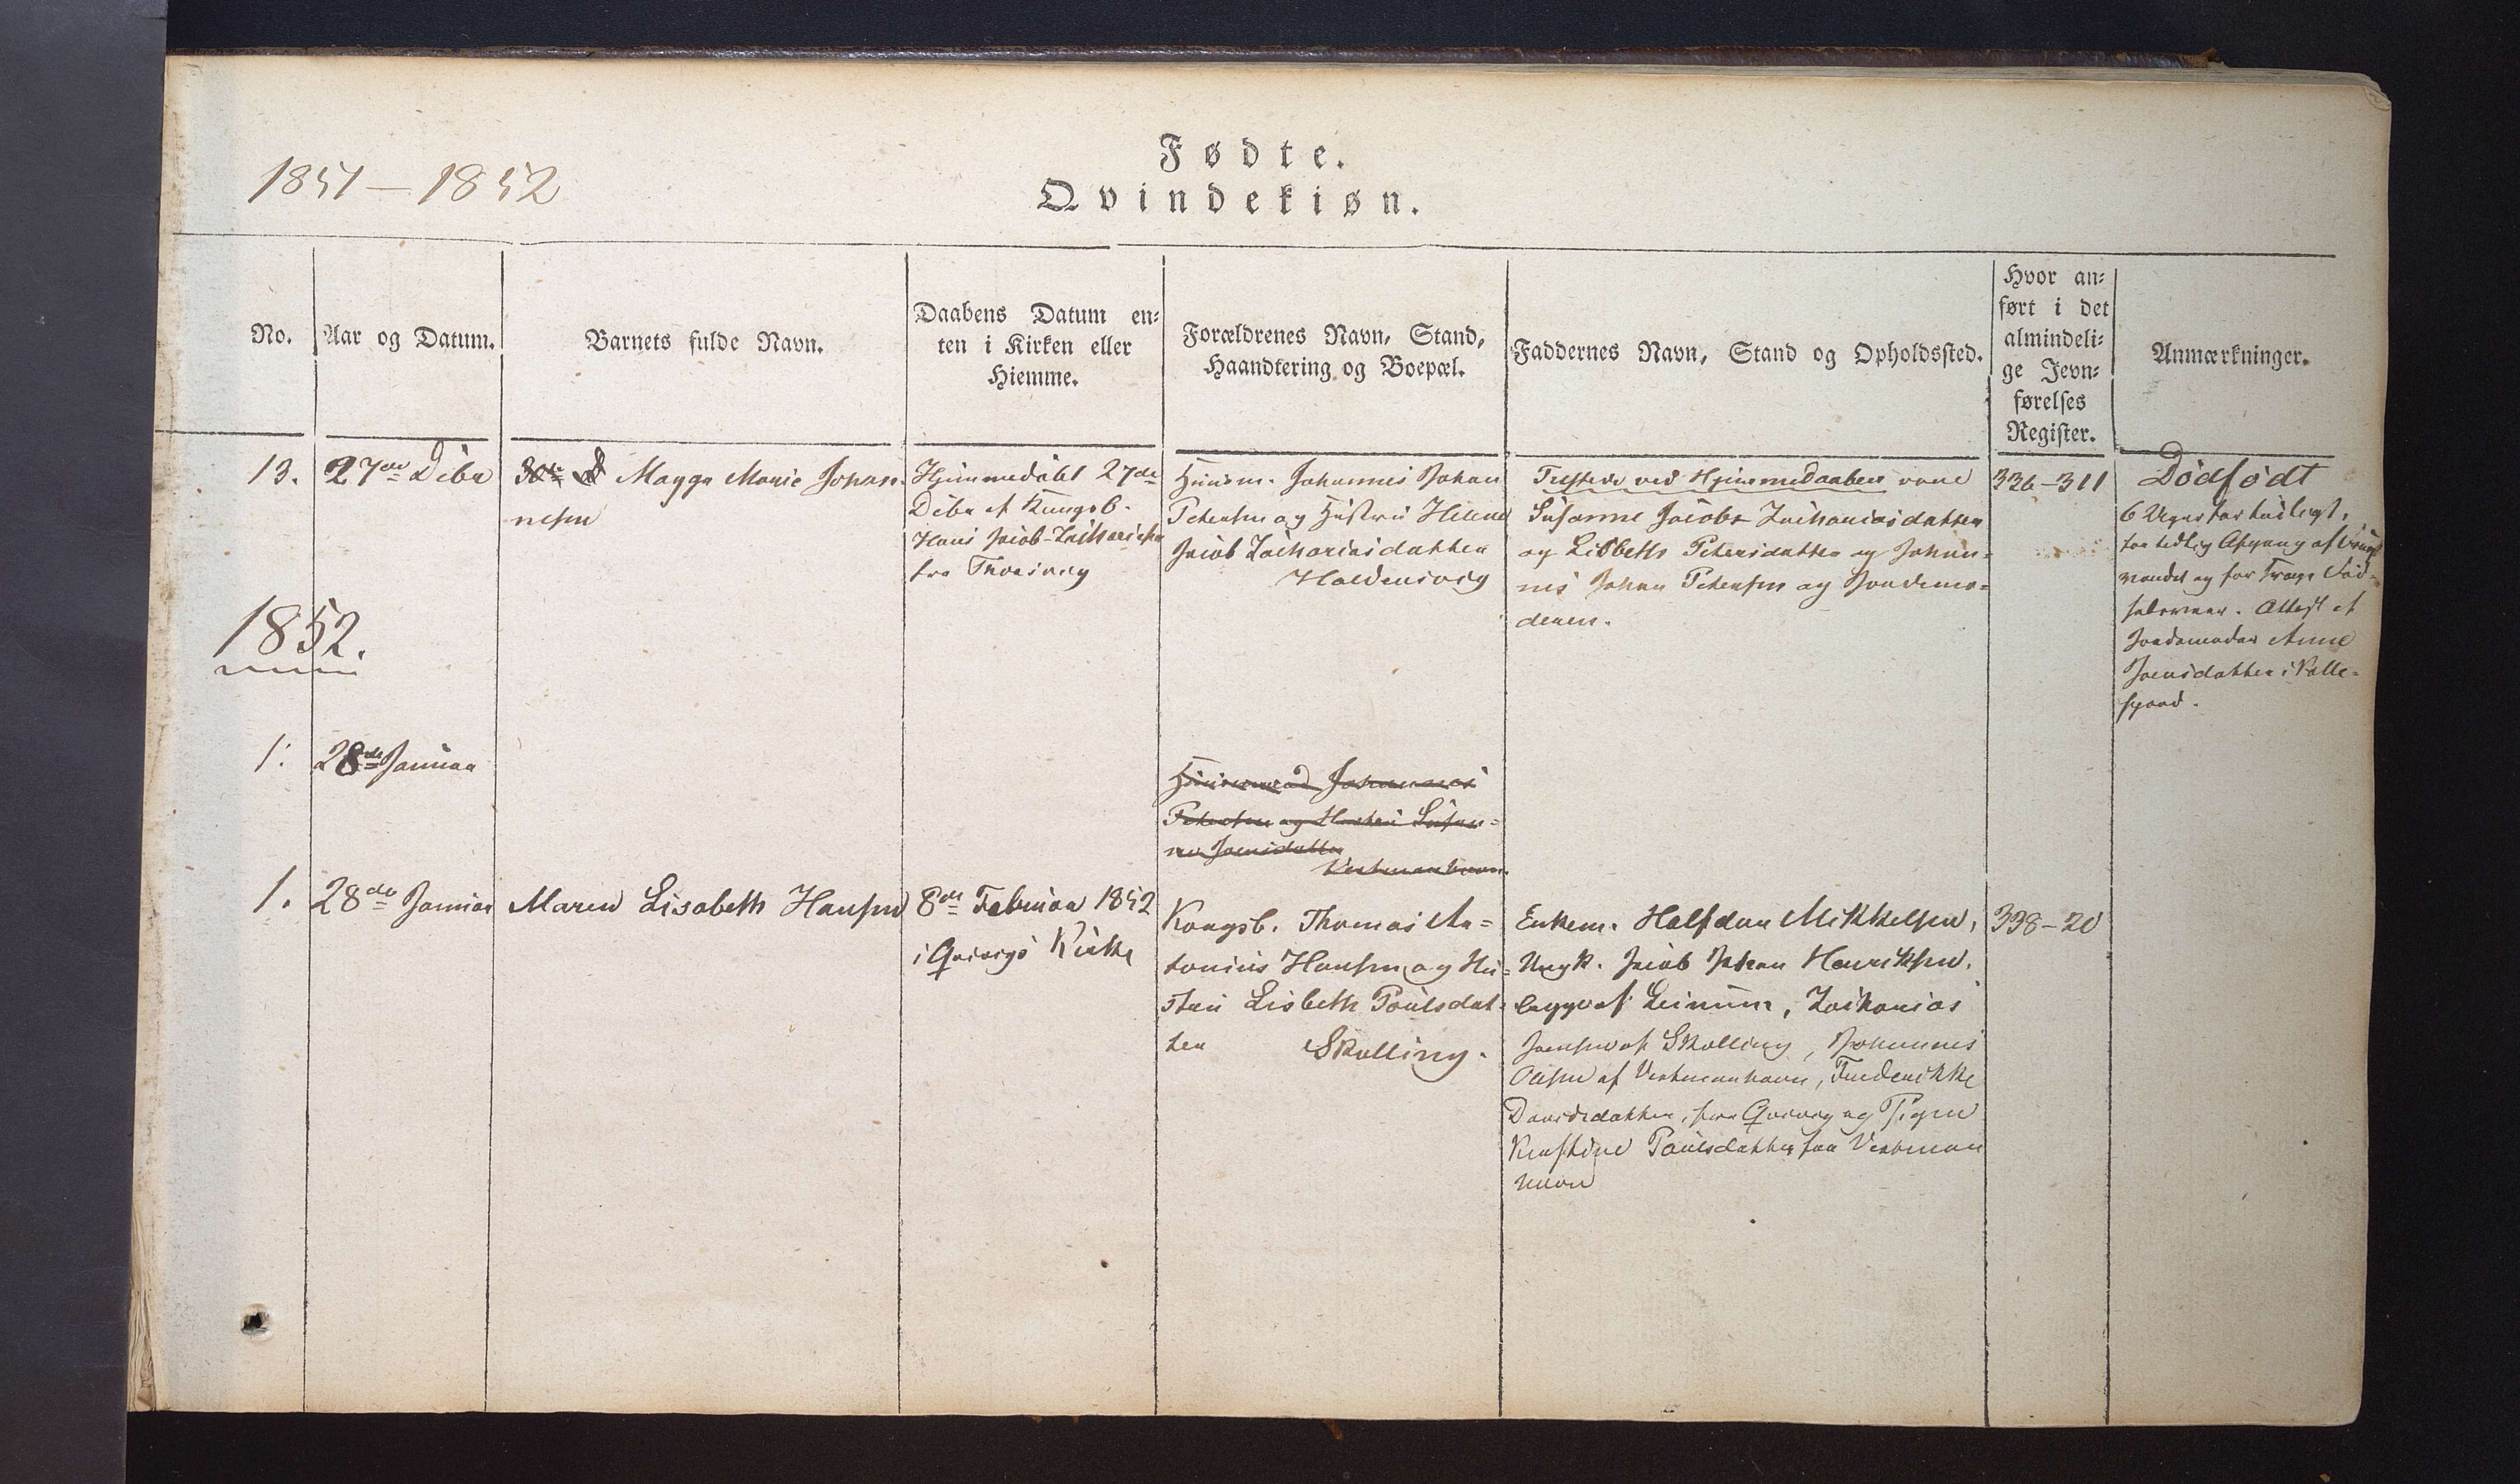 1851 — 1852
Fødte.
Qvindekiøn.
No.
Aar og Datum.
Barnets fulde Navn.
Daabens Datum en-
ten i Kirken eller
Hiemme.
Forældrenes Navn, Stand,
Haandtering og Boepæl.
Faddernes Navn, Stand og Opholdssted.
Hvor an-
ført i det
almindeli-
ge Jevn-
førelses
Register.
Anmærkninger.
13.
27de Debr
Magga Marie Johan-
nesen
Hjemmedøbt 27de
Debr af Kongsb.
Hans Jacob Zachariesen
fra Thorsvig
Huusm. Johannes Johan
Petersen og Hustru Helene
Jacob Zachariasdatter
Haldersvig
Tilstede ved Hjemmedaaben vare
Susanne Jacobs Zachariasdatter
og Lisbeth Petersdatter og Johan-
nes Johan Petersen og Jordemo-
deren.
336-311
Dödfödt
6 Uger for tidligt,
for tidlig Afgang af
vandet og for
Attest af
Jordemoder Anne
Joensdatter i Kolle-
fjord.
1852.
1.
28de Januar
Huusmand Johannes
Petersen og Hustru Susan-
ne Joensdatter
Vestmanhavn
1.
28de Januar
Maren Lisabeth Hansen
8de Februar 1852
i Qvivigs Kirke
Kongsb. Thomas An-
tonius Hansen og Hu-
stru Lisbeth Poulsdat-
ter Skælling.
Enkem. Halfdan Mikkelsen,
Ungk. Jacob Johan Henriksen,
begge af Leinum, Zacharias
Joensen af Skælling, Johannes
Olesen af Vestmanhavn, Frederikke
Davidsdatter, fra Qvivig og Pigen
Kirstine Poulsdatter fra Vestman
havn
338-20